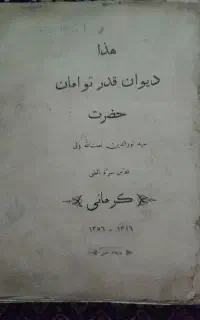 هذا
دیوان قدر توامان
حضرت
سید نورالدین نعمت‌الله ولی
قدس سره العلی
کرمانی
۱۳۱۶ - ۱۳۵۶